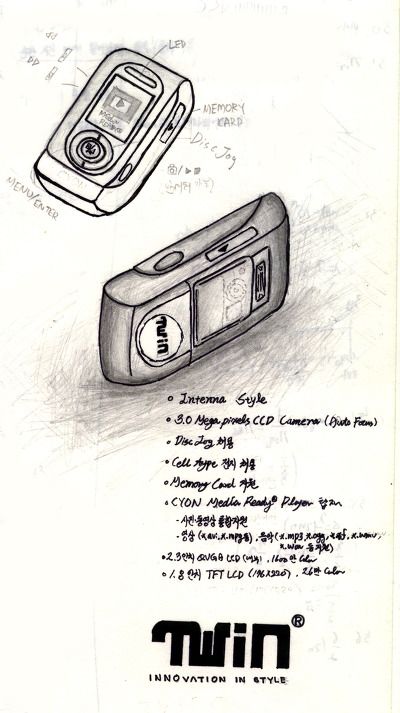 LED
MEMORY
CARD
Disc Jog
MENU/ENTER
TWiN
Intenna Style
3.0 Mega pixels CCD Camera (Auto Focus)
Disc Jog 채용
Cell type 전지 채용
Memory Card 지원
CYON Media Ready® Player 탑재
- 사진·동영상 통합지원
- 영상 (*.avi, *.mpg 등), 음악 (*.mp3, *.ogg, *.wmv,
*.wav 등 지원)
2.3인치 QVGA LCD, 1600만 Color
1.8인치 TFT LCD (176x220), 26만 Color
TWiN®
INNOVATION IN STYLE